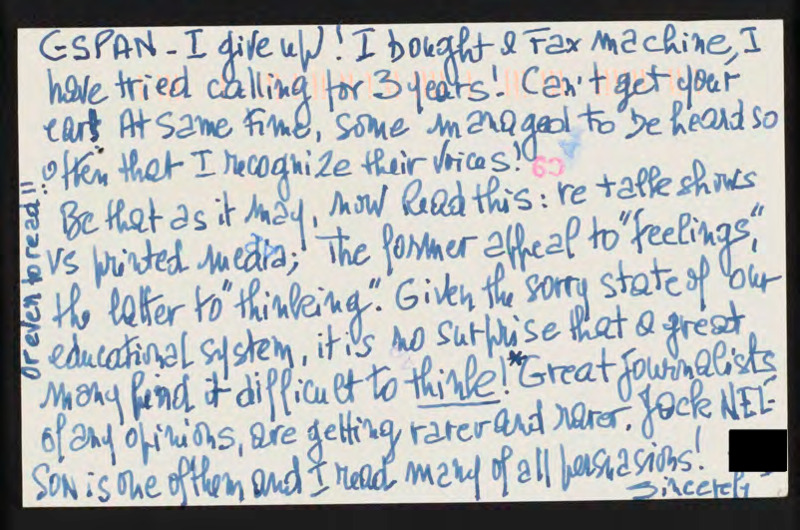 C-SPAN - I give up! I bought a Fax machine, I
have tried calling for 3 years! Can't get your
ear! At same time, some managed to be heard so
often that I recognize their voices!
Be that as it may, now Read this: re talk shows
vs printed media; The former appeal to "feelings",
the latter to "thinking". Given the sorry state of our
educational system, it is no surprise that a great
many find it difficult to think!* Great journalists
of any opinions, are getting rarer and rarer. Jack NEL-
SON is one of them and I read many of all persuasions!
Sincerely
*or even to read!!